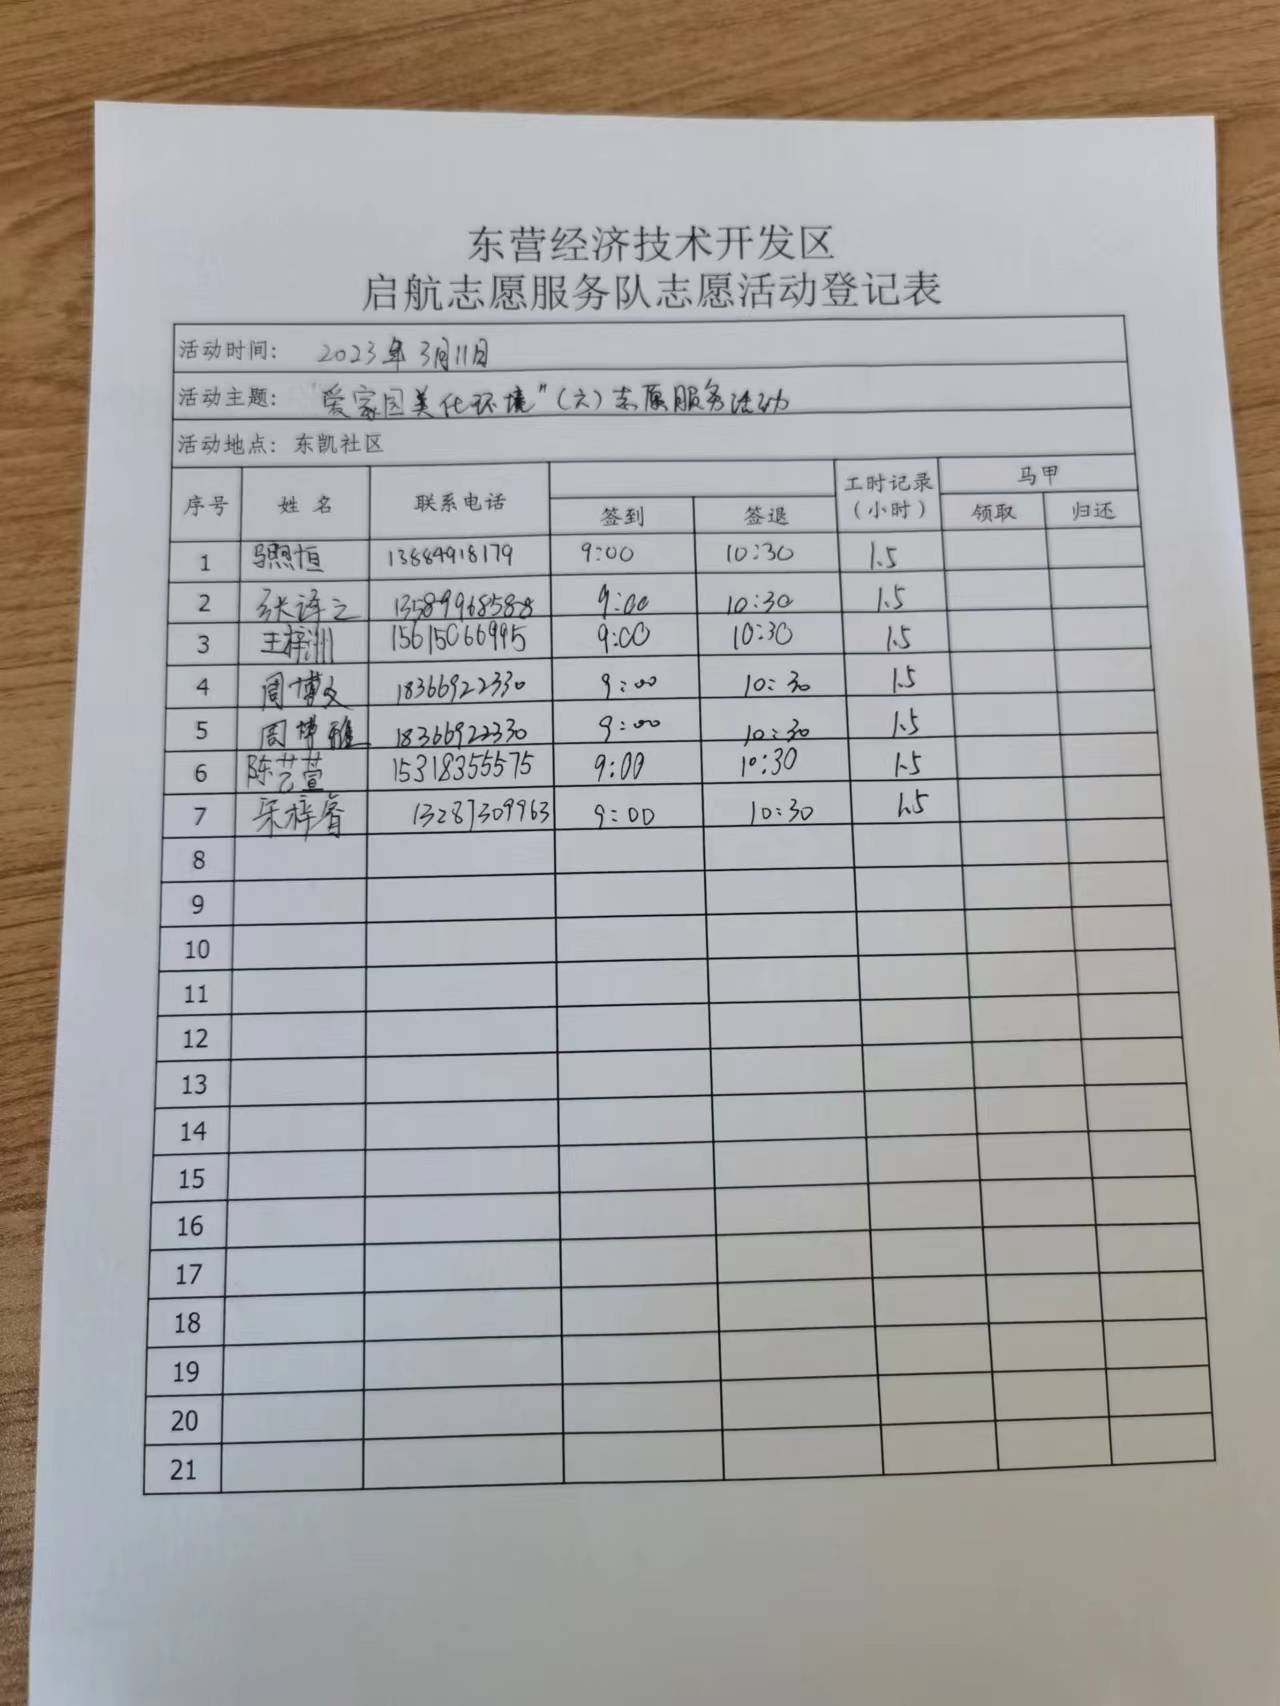 东营经济技术开发区
启航志愿服务队志愿活动登记表
活动时间: 2023年3月11日
活动主题: "爱家园美化环境"(六)志愿服务活动
活动地点: 东凯社区
序号 姓名 联系电话 签到 签退 工时记录(小时) 马甲 领取 归还
1 照恒 13884918179 9:00 10:30 1.5
2 张译之 13589968588 9:00 10:30 1.5
3 王梓洲 15615066995 9:00 10:30 1.5
4 周博文 18366922330 9:00 10:30 1.5
5 周博雅 18366922330 9:00 10:30 1.5
6 陈艺萱 15318355575 9:00 10:30 1.5
7 宋梓睿 13287309963 9:00 10:30 1.5
8
9
10
11
12
13
14
15
16
17
18
19
20
21